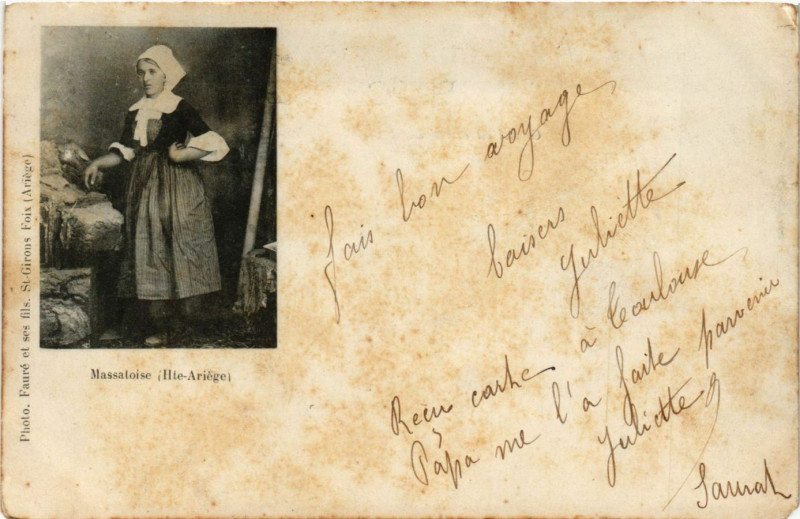 fais bon voyage
baisers
Juliette
Recu carte à Toulouse
Papa me l'a faite parvenir
Juliette
Massatoise (Hte-Ariége)
Photo. Fauré et ses fils. St-Girons Foix (Ariège)